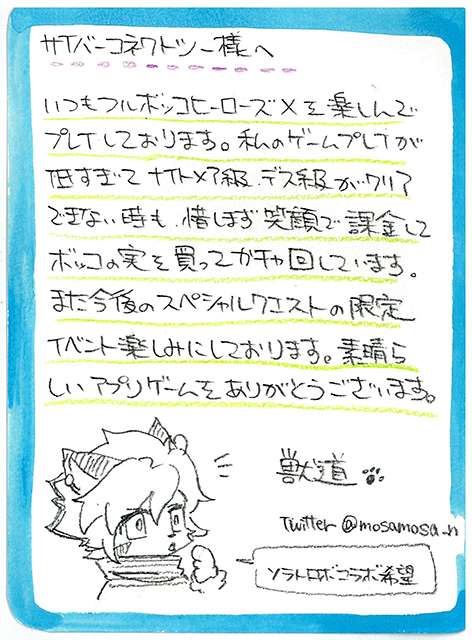 サイバーコネクトツー様へ
いつもフルボッコヒーローズXを楽しんで
プレイしております。私のゲームプレイが
低すぎてナイトメア級、デス級がクリア
できない時も、惜しまず笑顔で課金して
ボッコの実を買ってガチャ回しています。
また今後のスペシャルクエストの限定
イベント楽しみにしております。素晴ら
しいアプリゲームをありがとうございます。
獣道
Twitter @mosamosa_n
ソラトロボコラボ希望